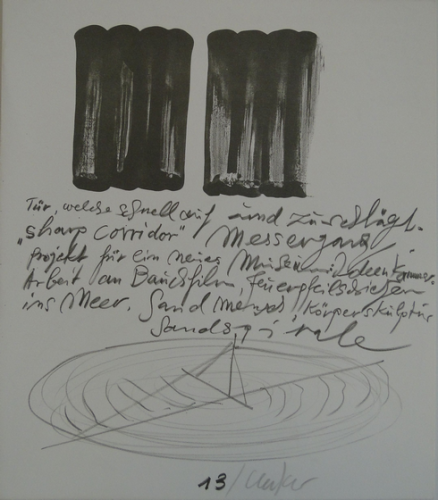 Tür, welche schnell auf und zuschlägt.
„sharp corridor" Messergang
Projekt für ein neues Museum. Ideenkammer.
Arbeit an Bauchfilm, Feuerpfeilschießen
ins Meer. Sand Körperskulptur
Sandspirale
13/Uecker